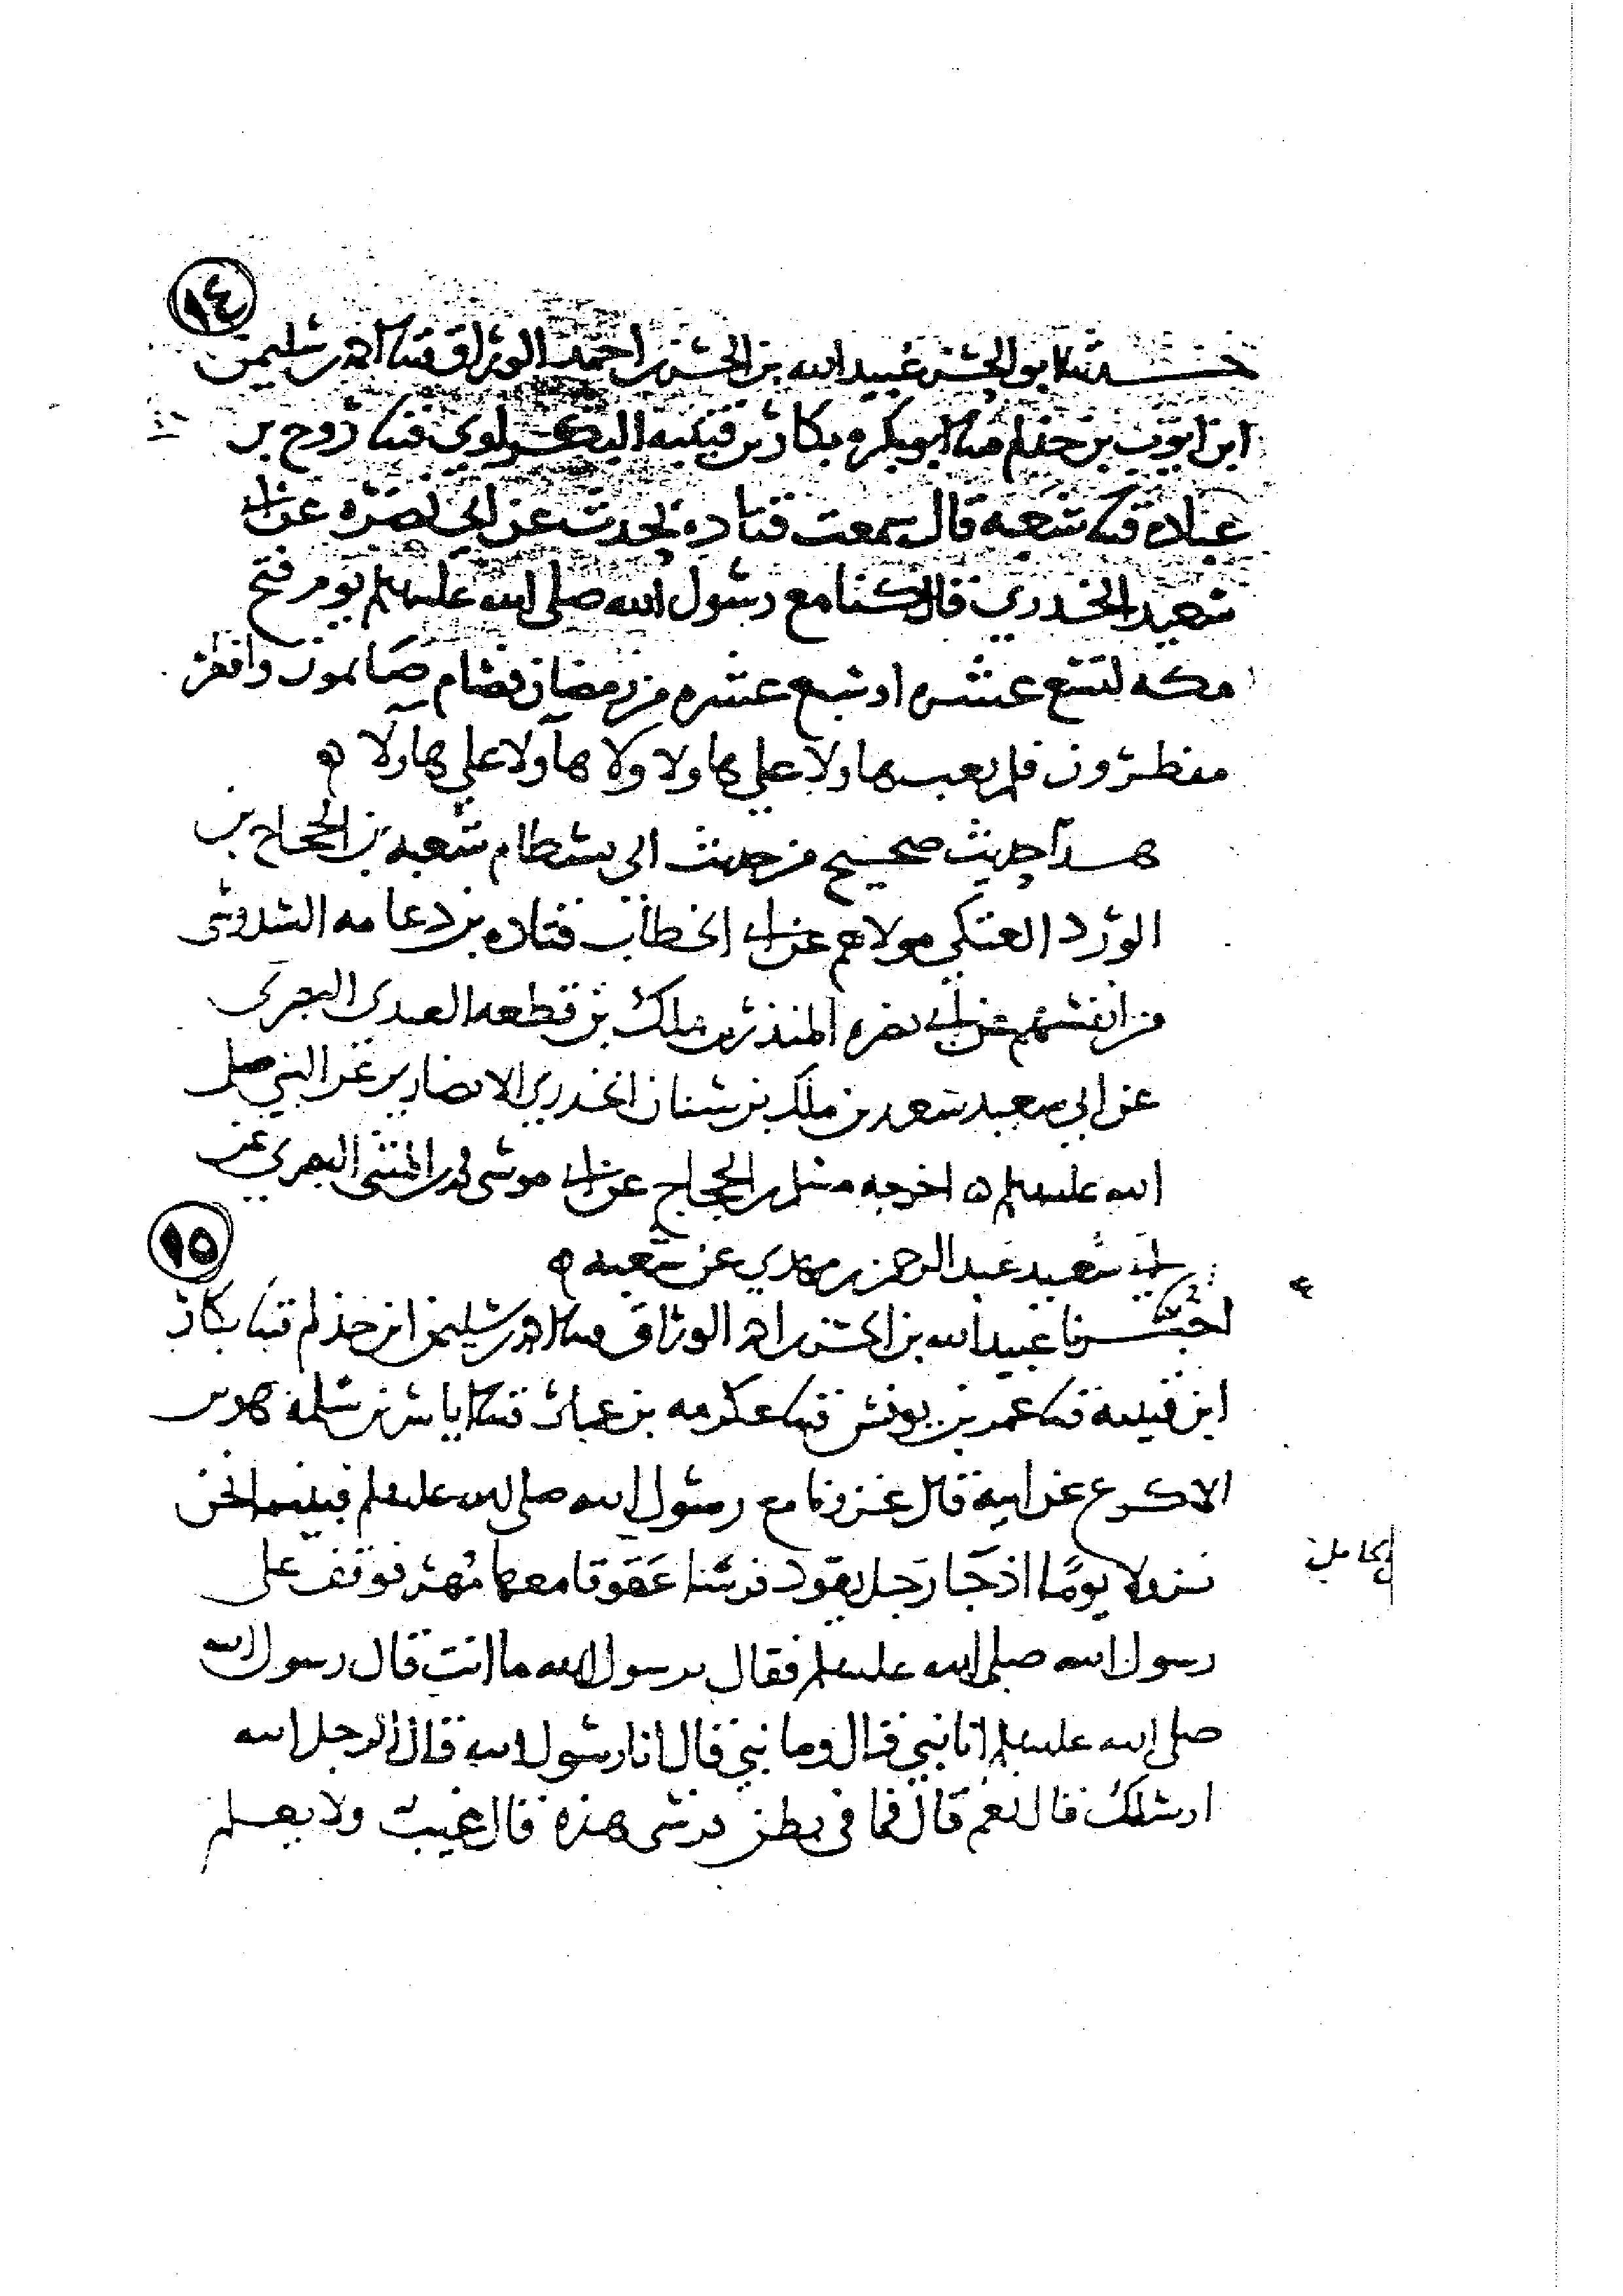 ١٤
حدثنا ابو الحسن عبيد الله بن الحسن بن احمد الوراق قثنا احمد بن سليمن
ابن ايوب بن حذلم قثنا ابو بكره بكار بن قتيبه البكراوي قثنا روح بن
عباده قثنا شعبه قال سمعت قتاده يحدث عن ابي نضره عن ابي
سعيد الخدري قال كنا مع رسول الله صلى الله عليه وسلم يوم فتح
مكه لتسع عشره او سبع عشره من رمضان فصام صائمون وافطر
مفطرون فلم يعب هاولا على هاولا ولا هاولا على هاولا ه
هذا حديث صحيح من حديث ابي بسطام شعبه بن الحجاج بن
الورد العتكي مولاهم عن ابي الخطاب قتاده بن دعامه السدوسي
من انفسهم عن ابي نضره المنذر بن ملك بن قطعه العبدي البصري
عن ابي سعيد سعد بن ملك بن سنان الخدري الانصاري عن النبي صلى
الله عليه وسلم ه اخرجه مسلم بن الحجاج عن ابي موسى محمد بن المثنى البصري عن
ابي سعيد عبد الرحمن بن مهدي عن شعبه ه
١٥
اخبرنا عبيد الله بن الحسن بن احمد الوراق قثنا احمد بن سليمن ابن حذلم قثنا بكار
ابن قتيبه قثنا عمر بن يونس قثنا عكرمه بن عمار قثنا اياس بن سلمة هو بن
الاكوع عن ابيه قال غزونا مع رسول الله صلى الله عليه وسلم فبينما نحن
نزولا يوما اذ جا رجل يقود فرسا عقوقا معها مهر فوقف على
رسول الله صلى الله عليه وسلم فقال يرسول الله ما انت قال رسول الله
صلى الله عليه وسلم انا نبي قال وما نبي قال انا رسول الله قال الرجل الله
ارسلك قال نعم قال فما في بطن فرسي هذه قال غيب ولا يعلم